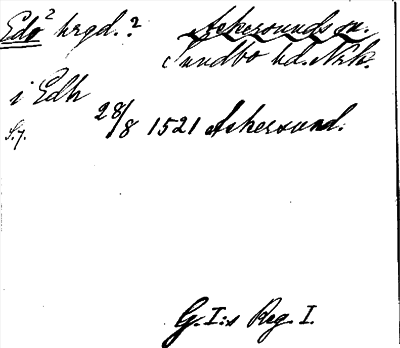 Edö² hrgd.? Askersunds sn.
Sundbo hd. Nrk.
i Edh
28/8 1521 Askersund.
G. I:s Reg. I.